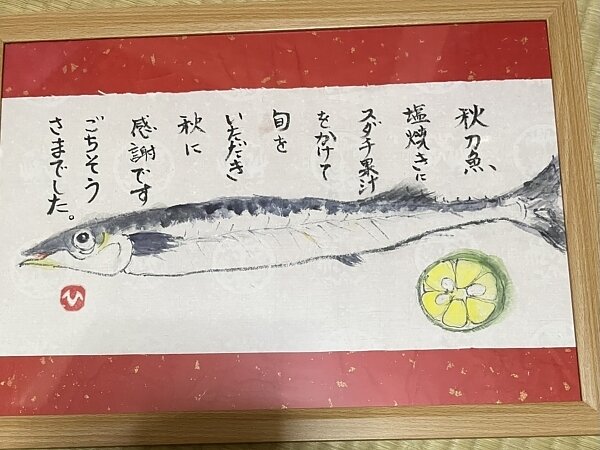 秋刀魚、
塩焼きに
スダチ果汁
をかけて
旬を
いただき
秋に
感謝です
ごちそう
さまでした。
ひ